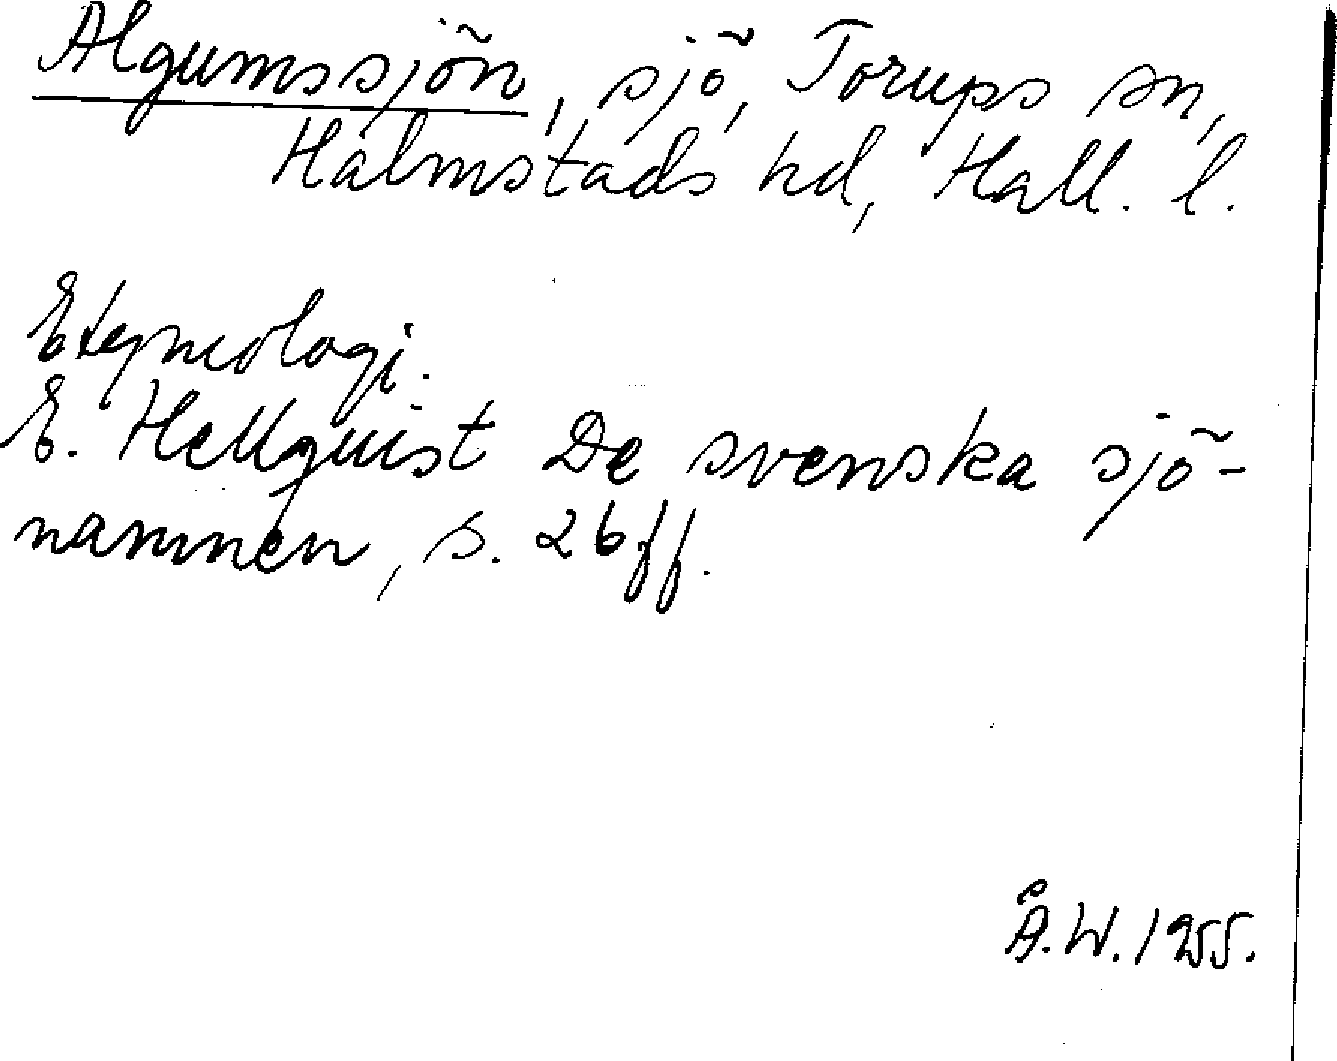 Algumssjön, sjö, Torups sn,
Halmstads hd, Hall. l.
Etymologi.
E. Hellquist De svenska sjö-
namnen, s. 26 ff.
Å.W. 1955.